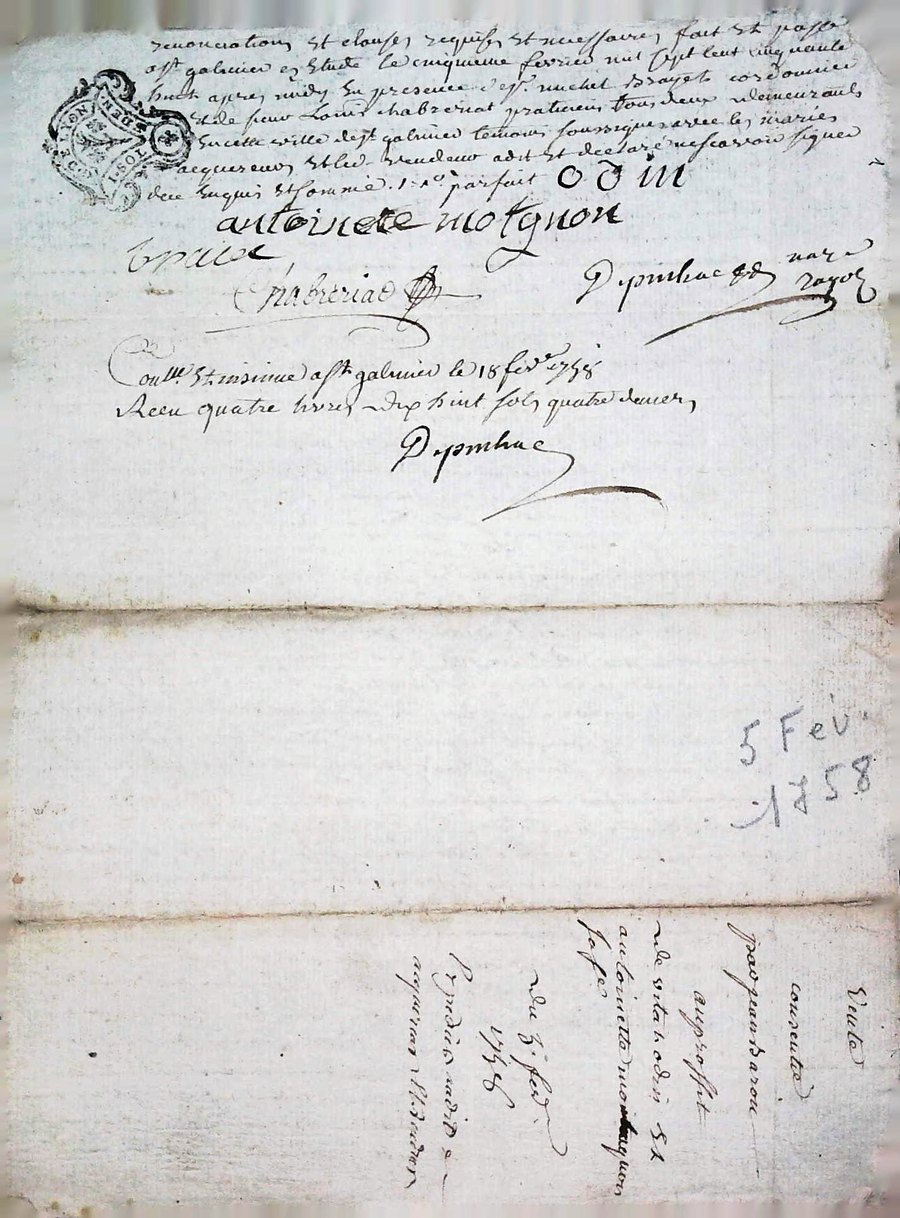 renonciations et clauses requises et necessaires fait et passé
a st galmier en etude le cinquieme fevrier mil sept cent cinquante
huit apres midy en presence de sr. michel Brayet cordonnier
et de sieur Louis chabreriat praticien tous deux demeurants
en cette ville de st galmier temoins soussignes avec les mariés
acquereurs et le vendeur a dit et declaré ne scavoir signer
de ce enquis et sommé parfait odin
antoinete motgnon
Braiet
Chabreriat
Depinhac
Conlle. et insinué a st galmier le 18 fevr 1758
Reçu quatre livres dix huit sols quatre deniers
Depinhac
5 Fev.
1758
Vente
consentie
par jean
au proffit
de vital odin et
antoinette
sa fe
du 5. fevr.
1758
acquereur
GEN. DE LYON